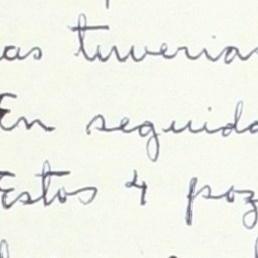 as tuveria
En seguida
Estos 4 poz